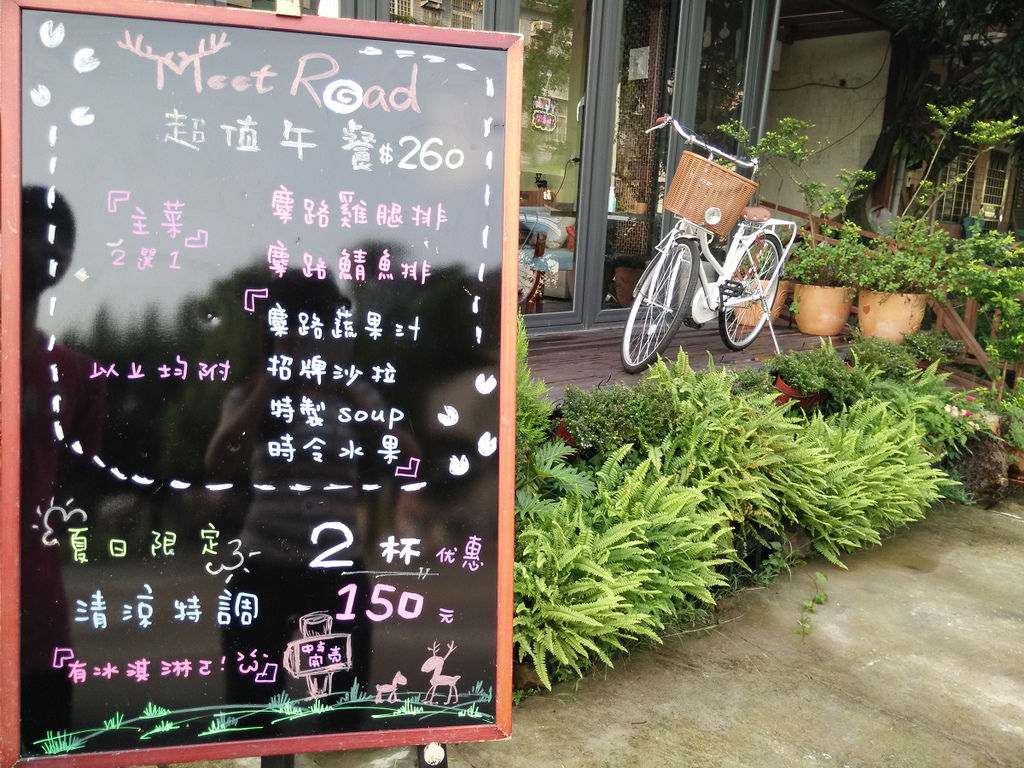 Meet Road
超值午餐$260
『主菜』
2選1
麋路雞腿排
麋路鯖魚排
以上均附
『麋路蔬果汁
招牌沙拉
特製soup
時令水果』
夏日限定
2杯优惠
清涼特調
150元
『有冰淇淋ㄛ!』